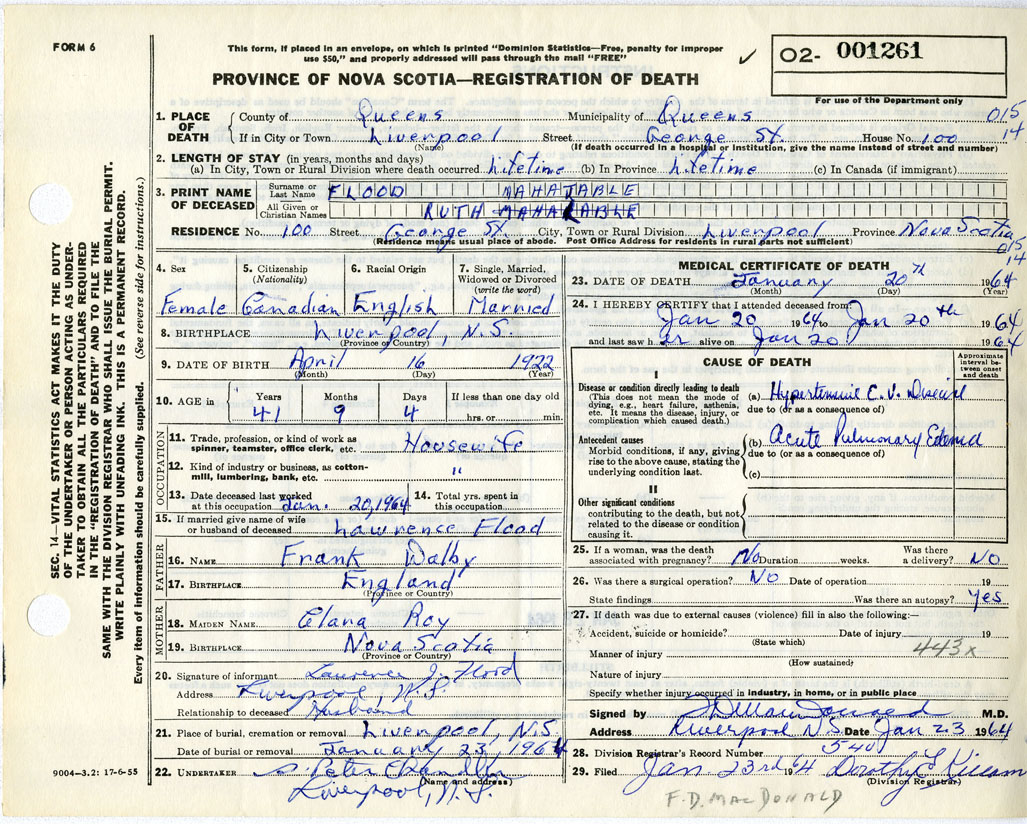 FORM 6
This form, if placed in an envelope, on which is printed "Dominion Statistics—Free, penalty for improper
use $50," and properly addressed will pass through the mail "FREE"
✓
O2- 001261
PROVINCE OF NOVA SCOTIA—REGISTRATION OF DEATH
For use of the Department only
1. PLACE OF DEATH
County of Queens Municipality of Queens 015
If in City or Town Liverpool Street George St. House No. 100 14
(Name) (If death occurred in a hospital or institution, give the name instead of street and number)
2. LENGTH OF STAY (in years, months and days)
(a) In City, Town or Rural Division where death occurred Lifetime (b) In Province Lifetime (c) In Canada (if immigrant)
3. PRINT NAME OF DECEASED
Surname or Last Name FLOOD MAHATABLE
All Given or Christian Names RUTH MAHATABLE
RESIDENCE No. 100 Street George St. City, Town or Rural Division Liverpool Province Nova Scotia
(Residence means usual place of abode. Post Office Address for residents in rural parts not sufficient)
015
14
4. Sex 5. Citizenship (Nationality) 6. Racial Origin 7. Single, Married, Widowed or Divorced (write the word)
Female Canadian English Married
8. BIRTHPLACE Liverpool, N.S.
(Province or Country)
9. DATE OF BIRTH April 16 1922
(Month) (Day) (Year)
10. AGE in Years Months Days If less than one day old
41 9 4 hrs. or min.
OCCUPATION
11. Trade, profession, or kind of work as spinner, teamster, office clerk, etc. Housewife
12. Kind of industry or business, as cotton-mill, lumbering, bank, etc. "
13. Date deceased last worked at this occupation Jan. 20, 1964 14. Total yrs. spent in this occupation
15. If married give name of wife or husband of deceased Lawrence Flood
FATHER
16. NAME Frank Dalby
17. BIRTHPLACE England
(Province or Country)
MOTHER
18. MAIDEN NAME Clana Roy
19. BIRTHPLACE Nova Scotia
(Province or Country)
20. Signature of informant Lawrence J. Flood
Address Liverpool, N.S.
Relationship to deceased Husband
21. Place of burial, cremation or removal Liverpool, N.S.
Date of burial or removal January 23, 1964
22. UNDERTAKER Peter Chandler
(Name and address)
Liverpool, N.S.
9004-3.2: 17-6-55
MEDICAL CERTIFICATE OF DEATH
23. DATE OF DEATH January 20th 1964
(Month) (Day) (Year)
24. I HEREBY CERTIFY that I attended deceased from:
Jan 20 1964 to Jan 20th 1964
and last saw her alive on Jan 20 1964
CAUSE OF DEATH
Approximate interval between onset and death
I
Disease or condition directly leading to death
(This does not mean the mode of dying, e.g., heart failure, asthenia, etc. It means the disease, injury, or complication which caused death.)
(a) Hypertensive C.V. Disease
due to (or as a consequence of)
Antecedent causes
Morbid conditions, if any, giving rise to the above cause, stating the underlying condition last.
(b) Acute Pulmonary Edema
due to (or as a consequence of)
(c)
II
Other significant conditions
contributing to the death, but not related to the disease or condition causing it.
25. If a woman, was the death associated with pregnancy? No Duration weeks. Was there a delivery? NO
26. Was there a surgical operation? NO Date of operation 19
State findings Was there an autopsy? Yes
27. If death was due to external causes (violence) fill in also the following:—
Accident, suicide or homicide? Date of injury 19
(State which)
443x
Manner of injury
(How sustained)
Nature of injury
Specify whether injury occurred in industry, in home, or in public place
Signed by M.D.
Address Liverpool N.S. Date Jan 23 1964
28. Division Registrar's Record Number 540
29. Filed Jan. 23rd 1964 Dorothy Killam
(Division Registrar)
F.D. MACDONALD
SEC. 14—VITAL STATISTICS ACT MAKES IT THE DUTY
OF THE UNDERTAKER OR PERSON ACTING AS UNDER-
TAKER TO OBTAIN ALL THE PARTICULARS REQUIRED
IN THE "REGISTRATION OF DEATH" AND TO FILE THE
SAME WITH THE DIVISION REGISTRAR WHO SHALL ISSUE THE BURIAL PERMIT.
WRITE PLAINLY WITH UNFADING INK. THIS IS A PERMANENT RECORD.
Every item of information should be carefully supplied. (See reverse side for instructions.)